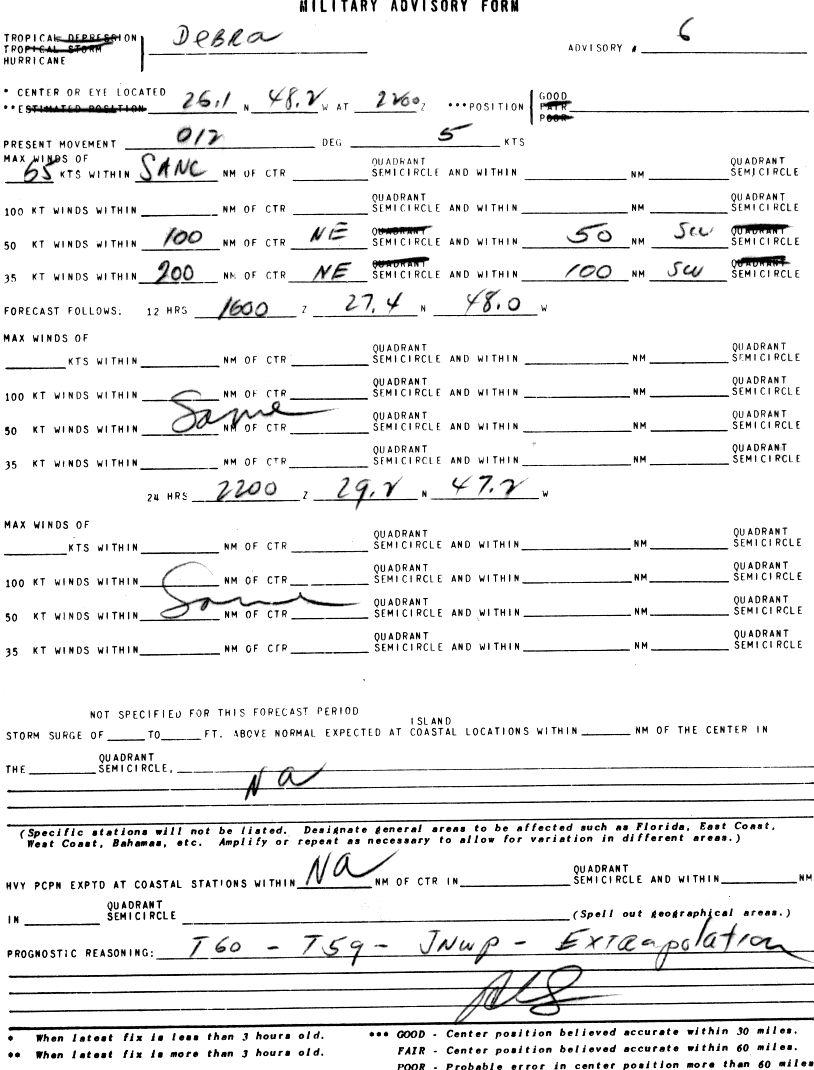 MILITARY ADVISORY FORM
TROPICAL DEPRESSION
TROPICAL STORM
HURRICANE
DeBRA
ADVISORY # 6
* CENTER OR EYE LOCATED
**ESTIMATED POSITION 26.1 N 48.2 W AT 2200 Z ***POSITION
GOOD
FAIR
POOR
PRESENT MOVEMENT 012 DEG 5 KTS
MAX WINDS OF
65 KTS WITHIN SANC NM OF CTR QUADRANT SEMICIRCLE AND WITHIN NM QUADRANT SEMICIRCLE
100 KT WINDS WITHIN NM OF CTR QUADRANT SEMICIRCLE AND WITHIN NM QUADRANT SEMICIRCLE
50 KT WINDS WITHIN 100 NM OF CTR NE QUADRANT SEMICIRCLE AND WITHIN 50 NM SW QUADRANT SEMICIRCLE
35 KT WINDS WITHIN 200 NM OF CTR NE QUADRANT SEMICIRCLE AND WITHIN 100 NM SW QUADRANT SEMICIRCLE
FORECAST FOLLOWS. 12 HRS 1600 Z 27.4 N 48.0 W
MAX WINDS OF
KTS WITHIN NM OF CTR QUADRANT SEMICIRCLE AND WITHIN NM QUADRANT SEMICIRCLE
100 KT WINDS WITHIN NM OF CTR QUADRANT SEMICIRCLE AND WITHIN NM QUADRANT SEMICIRCLE
Same
50 KT WINDS WITHIN NM OF CTR QUADRANT SEMICIRCLE AND WITHIN NM QUADRANT SEMICIRCLE
35 KT WINDS WITHIN NM OF CTR QUADRANT SEMICIRCLE AND WITHIN NM QUADRANT SEMICIRCLE
24 HRS 2200 Z 29.2 N 47.2 W
MAX WINDS OF
KTS WITHIN NM OF CTR QUADRANT SEMICIRCLE AND WITHIN NM QUADRANT SEMICIRCLE
100 KT WINDS WITHIN NM OF CTR QUADRANT SEMICIRCLE AND WITHIN NM QUADRANT SEMICIRCLE
Same
50 KT WINDS WITHIN NM OF CTR QUADRANT SEMICIRCLE AND WITHIN NM QUADRANT SEMICIRCLE
35 KT WINDS WITHIN NM OF CTR QUADRANT SEMICIRCLE AND WITHIN NM QUADRANT SEMICIRCLE
NOT SPECIFIED FOR THIS FORECAST PERIOD
ISLAND
STORM SURGE OF TO FT. ABOVE NORMAL EXPECTED AT COASTAL LOCATIONS WITHIN NM OF THE CENTER IN
THE QUADRANT SEMICIRCLE,
Na
(Specific stations will not be listed. Designate general areas to be affected such as Florida, East Coast,
West Coast, Bahamas, etc. Amplify or repeat as necessary to allow for variation in different areas.)
HVY PCPN EXPTD AT COASTAL STATIONS WITHIN Na NM OF CTR IN QUADRANT SEMICIRCLE AND WITHIN NM
IN QUADRANT SEMICIRCLE (Spell out geographical areas.)
PROGNOSTIC REASONING: T60 - T59 - JNWP - Extrapolation
* When latest fix is less than 3 hours old.
** When latest fix is more than 3 hours old.
*** GOOD - Center position believed accurate within 30 miles.
FAIR - Center position believed accurate within 60 miles.
POOR - Probable error in center position more than 60 miles